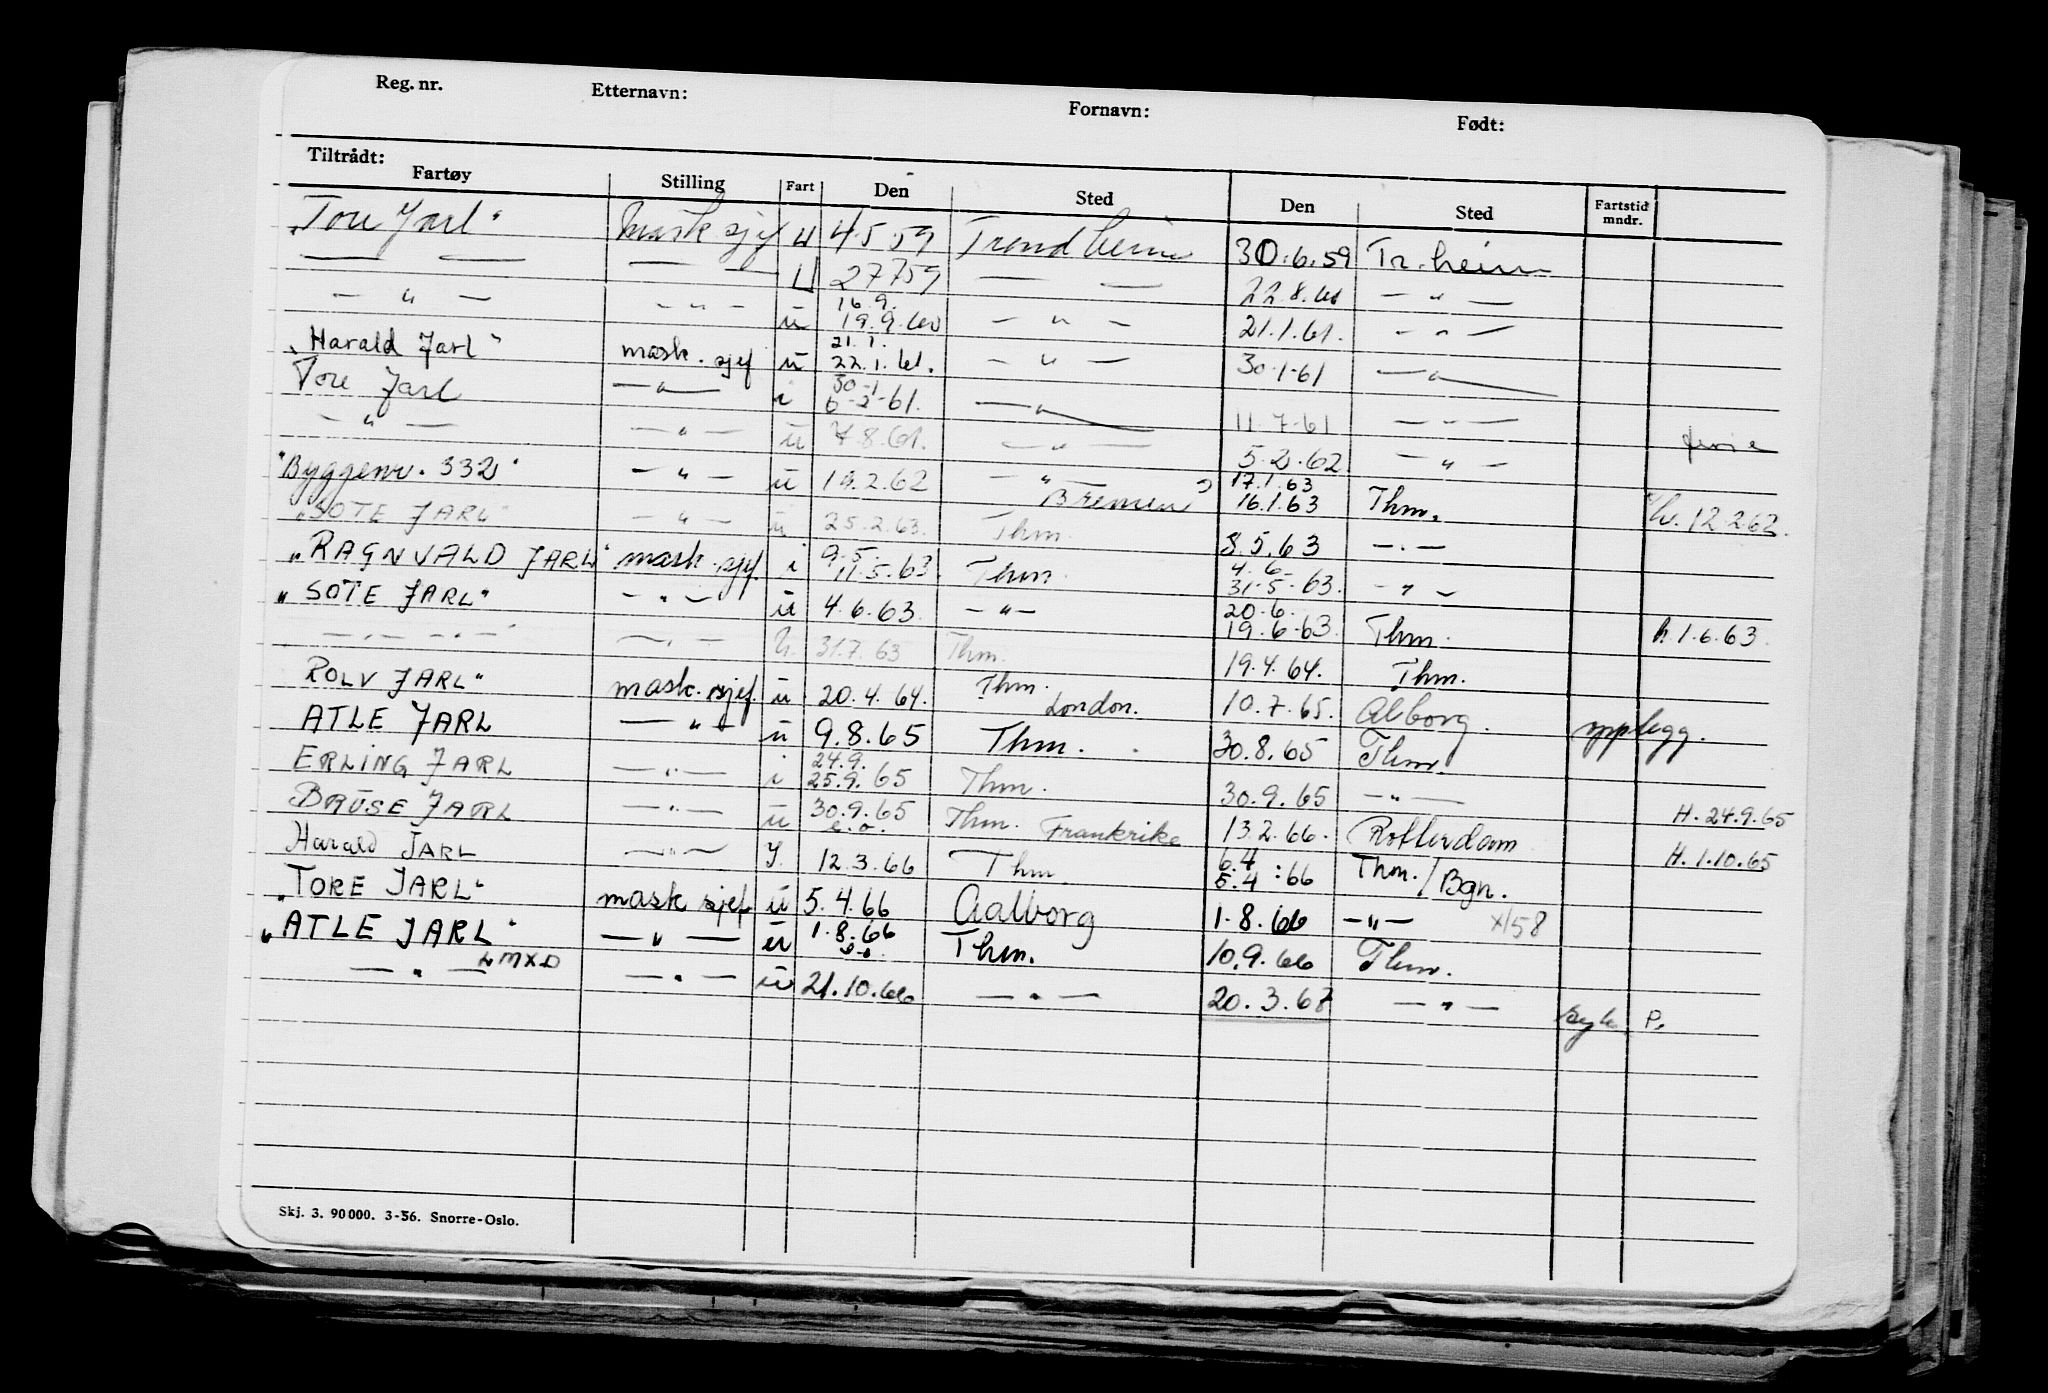 Reg. nr. Etternavn: Fornavn: Født:
Tiltrådt:
Fartøy Stilling Fart Den Sted Den Sted Fartstid mndr.
"Tore Jarl" Mask sjef U 4.5.59 Trondheim 30.6.59 Tr.heim
— — — — U 27.7.59 — — 22.8.60 — " —
— " — — " — u 16.9. 19.9.60 — " — 21.1.61. — " —
"Harald Jarl" mask. sjef u 21.1. 22.1.61. — " — 30-1-61 — " —
Tore Jarl — " — i 30-1 6-2-61. — " — 11-7-61 — " — ferie
— " — — " — u 7.8.61. — " — 5.2.62. — " —
"Byggenr. 332" — " — u 19.2.62 — " — Bremen 17.1.63 16.1.63 Thm. 12.2.62.
"SOTE JARL" — " — u 25.2.63. Thm. 8.5.63 — " —
"RAGNVALD JARL" mask. sjef. i 9.5. 11.5.63. Thm. 4.6. 31-5-63. — " —
"SOTE JARL" — " — u 4.6.63. — " — 20.6. 19.6-63. Thm. h. 1.6.63.
— " — — " — — " — u. 31.7.63 Thm. 19.4.64. Thm.
ROLV JARL" mask. sjef. u 20.4.64. Thm. London. 10.7.65. Alborg. opplegg.
ATLE JARL — " — u 9.8.65 Thm. 30.8.65 Thm.
ERLING JARL — " — i 24.9. 25.9.65 Thm. 30.9.65 — " — H. 24.9.65
BRUSE JARL — " — u 30.9.65 e.o. Thm. Frankrike 13.2.66. Rotterdam H. 1.10.65
Harald JARL — " — I. 12.3.66 Thm. 6.4 5.4:66 Thm./Bgn.
"TORE JARL" mask sjef u 5.4.66 Aalborg 1.8.66 — " — X/58
"ATLE JARL" — " — u 1.8.66 e.o. Thm. 10.9.66 Thm.
— " — LMXD — " — u 21.10.66 — " — 20.3.67 — " — P.
Skj. 3. 90000. 3-56. Snorre-Oslo.